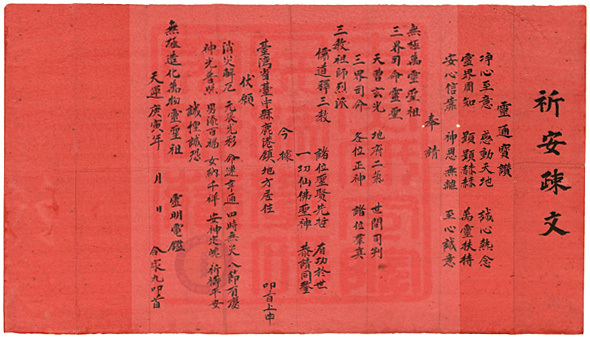 祈安疏文
靈通寶讚
淨心至意 感動天地 誠心無念
靈界周知 顯顯赫赫 萬靈扶持
安心信靠 神恩無疆 至心誠意
奉請
無極萬靈聖祖
三界司命靈聖
天曹玄光 地府二氣 世間司判
三界司命 各位正神 諸位羣真
三教祖師列派
儒道釋三教 諸位聖賢先哲 有功於世
一切仙佛聖神 恭請同鑒
今據
臺灣省臺中縣鹿港鎮地方居住 叩首上申
伏願
消災解厄 元辰光彩 命運亨通 四時無災 八節有慶
神光普照 男添百福 女納千祥 安神定魄 祈禱平安
誠惶誠恐
無極造化萬物靈聖祖 靈明電鑑
天運庚寅年 月 日 合家九叩首